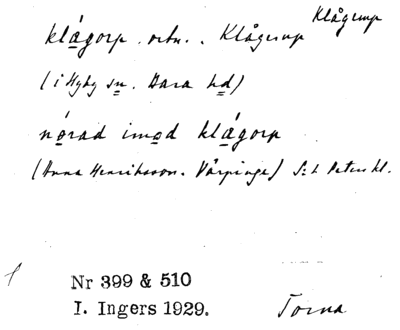 Klågerup
klágorp . ortn. . Klågerup
(i Hyby sn. Bara hd)
nórad imod klágorp
(Anna Henriksson. Vårpinge) S:t Peters kl.
Nr 399 & 510
I. Ingers 1929. Torna